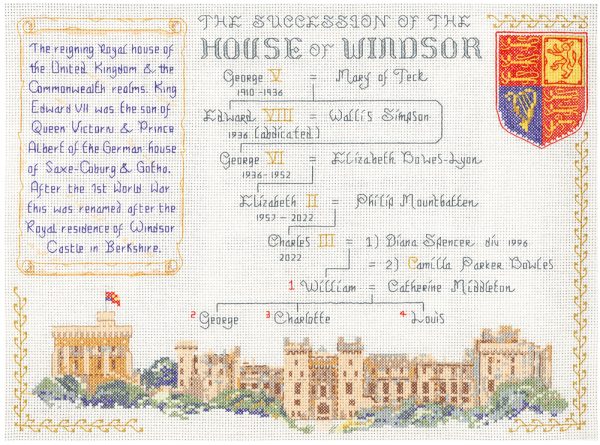 THE SUCCESSION OF THE
HOUSE OF WINDSOR
The reigning Royal house of
the United Kingdom & the
Commonwealth realms. King
Edward VII was the son of
Queen Victoria & Prince
Albert of the German house
of Saxe-Coburg & Gotha.
After the 1st World War
this was renamed after the
Royal residence of Windsor
Castle in Berkshire.
George V = Mary of Teck
1910 - 1936
Edward VIII = Wallis Simpson
1936 (abdicated)
George VI = Elizabeth Bowes-Lyon
1936 - 1952
Elizabeth II = Philip Mountbatten
1952 - 2022
Charles III = 1) Diana Spencer div 1996
2022
= 2) Camilla Parker Bowles
1 William = Catherine Middleton
2 George 3 Charlotte 4 Louis